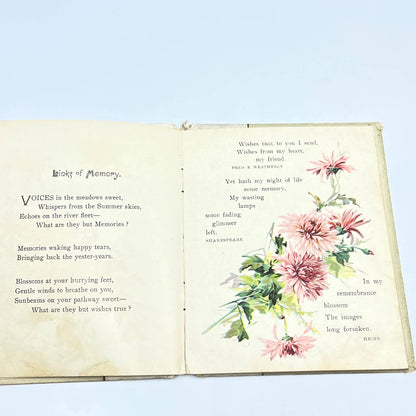 Links of Memory.
VOICES in the meadows sweet,
Whispers from the Summer skies,
Echoes on the river fleet—
What are they but Memories?
Memories waking happy tears,
Bringing back the yester-years.
Blossoms at your hurrying feet,
Gentle winds to breathe on you,
Sunbeams on your pathway sweet—
What are they but wishes true?
Wishes that to you I send,
Wishes from my heart,
my friend.
FRED E. WEATHERLY
Yet hath my night of life
some memory,
My wasting
lamps
some fading
glimmer
left.
SHAKESPEARE.
In my
remembrance
blossom
The images
long forsaken.
HEINE.